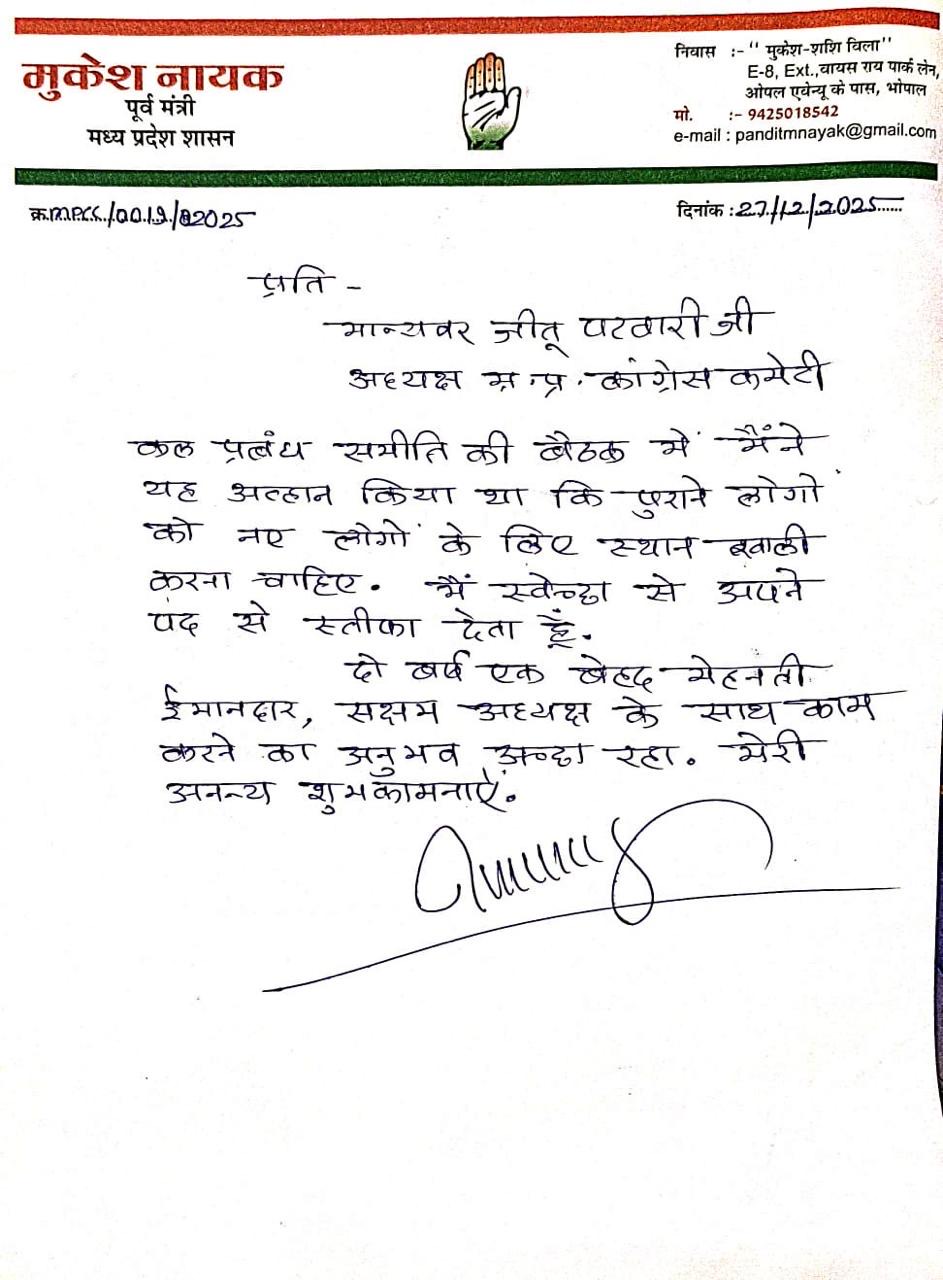 मुकेश नायक
पूर्व मंत्री
मध्य प्रदेश शासन
निवास :- " मुकेश-शशि विला"
E-8, Ext.,वायस राय पार्क लेन,
ओपल एवेन्यू के पास, भोपाल
मो. :- 9425018542
e-mail : panditmnayak@gmail.com
क्र.MPCC/0019/2025
दिनांक :27/12/2025
प्रति -
मान्यवर जीतू पटवारी जी
अध्यक्ष म.प्र. कांग्रेस कमेटी
कल प्रबंध समीति की बैठक में मैंने
यह अव्हान किया था कि पुराने लोगों
को नए लोगों के लिए स्थान खाली
करना चाहिए. मैं स्वेच्छा से अपने
पद से स्तीफा देता हूँ.
दो वर्ष एक बेहद मेहनती
ईमानदार, सक्षम अध्यक्ष के साथ काम
करने का अनुभव अच्छा रहा. मेरी
अनन्य शुभकामनाऐं.